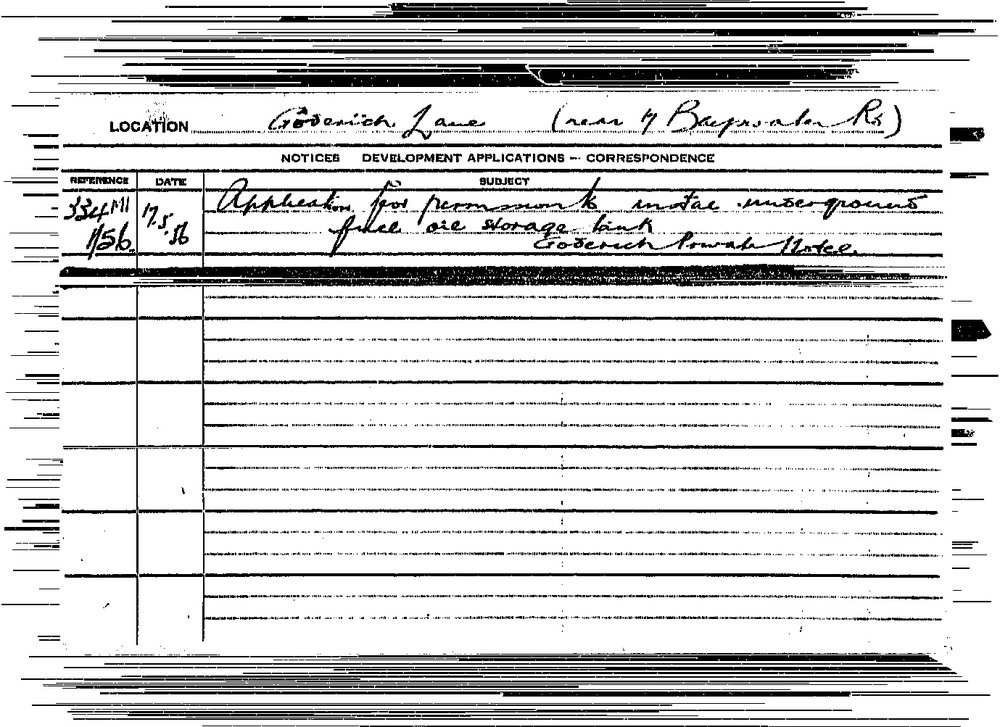 LOCATION Goderich Lane (rear 4 Bayswater Rd)
NOTICES DEVELOPMENT APPLICATIONS — CORRESPONDENCE
REFERENCE DATE SUBJECT
334 MI 17.5.56 Application for permission to instal underground
1/56. fuel oil storage tank
Goderich Private Hotel.